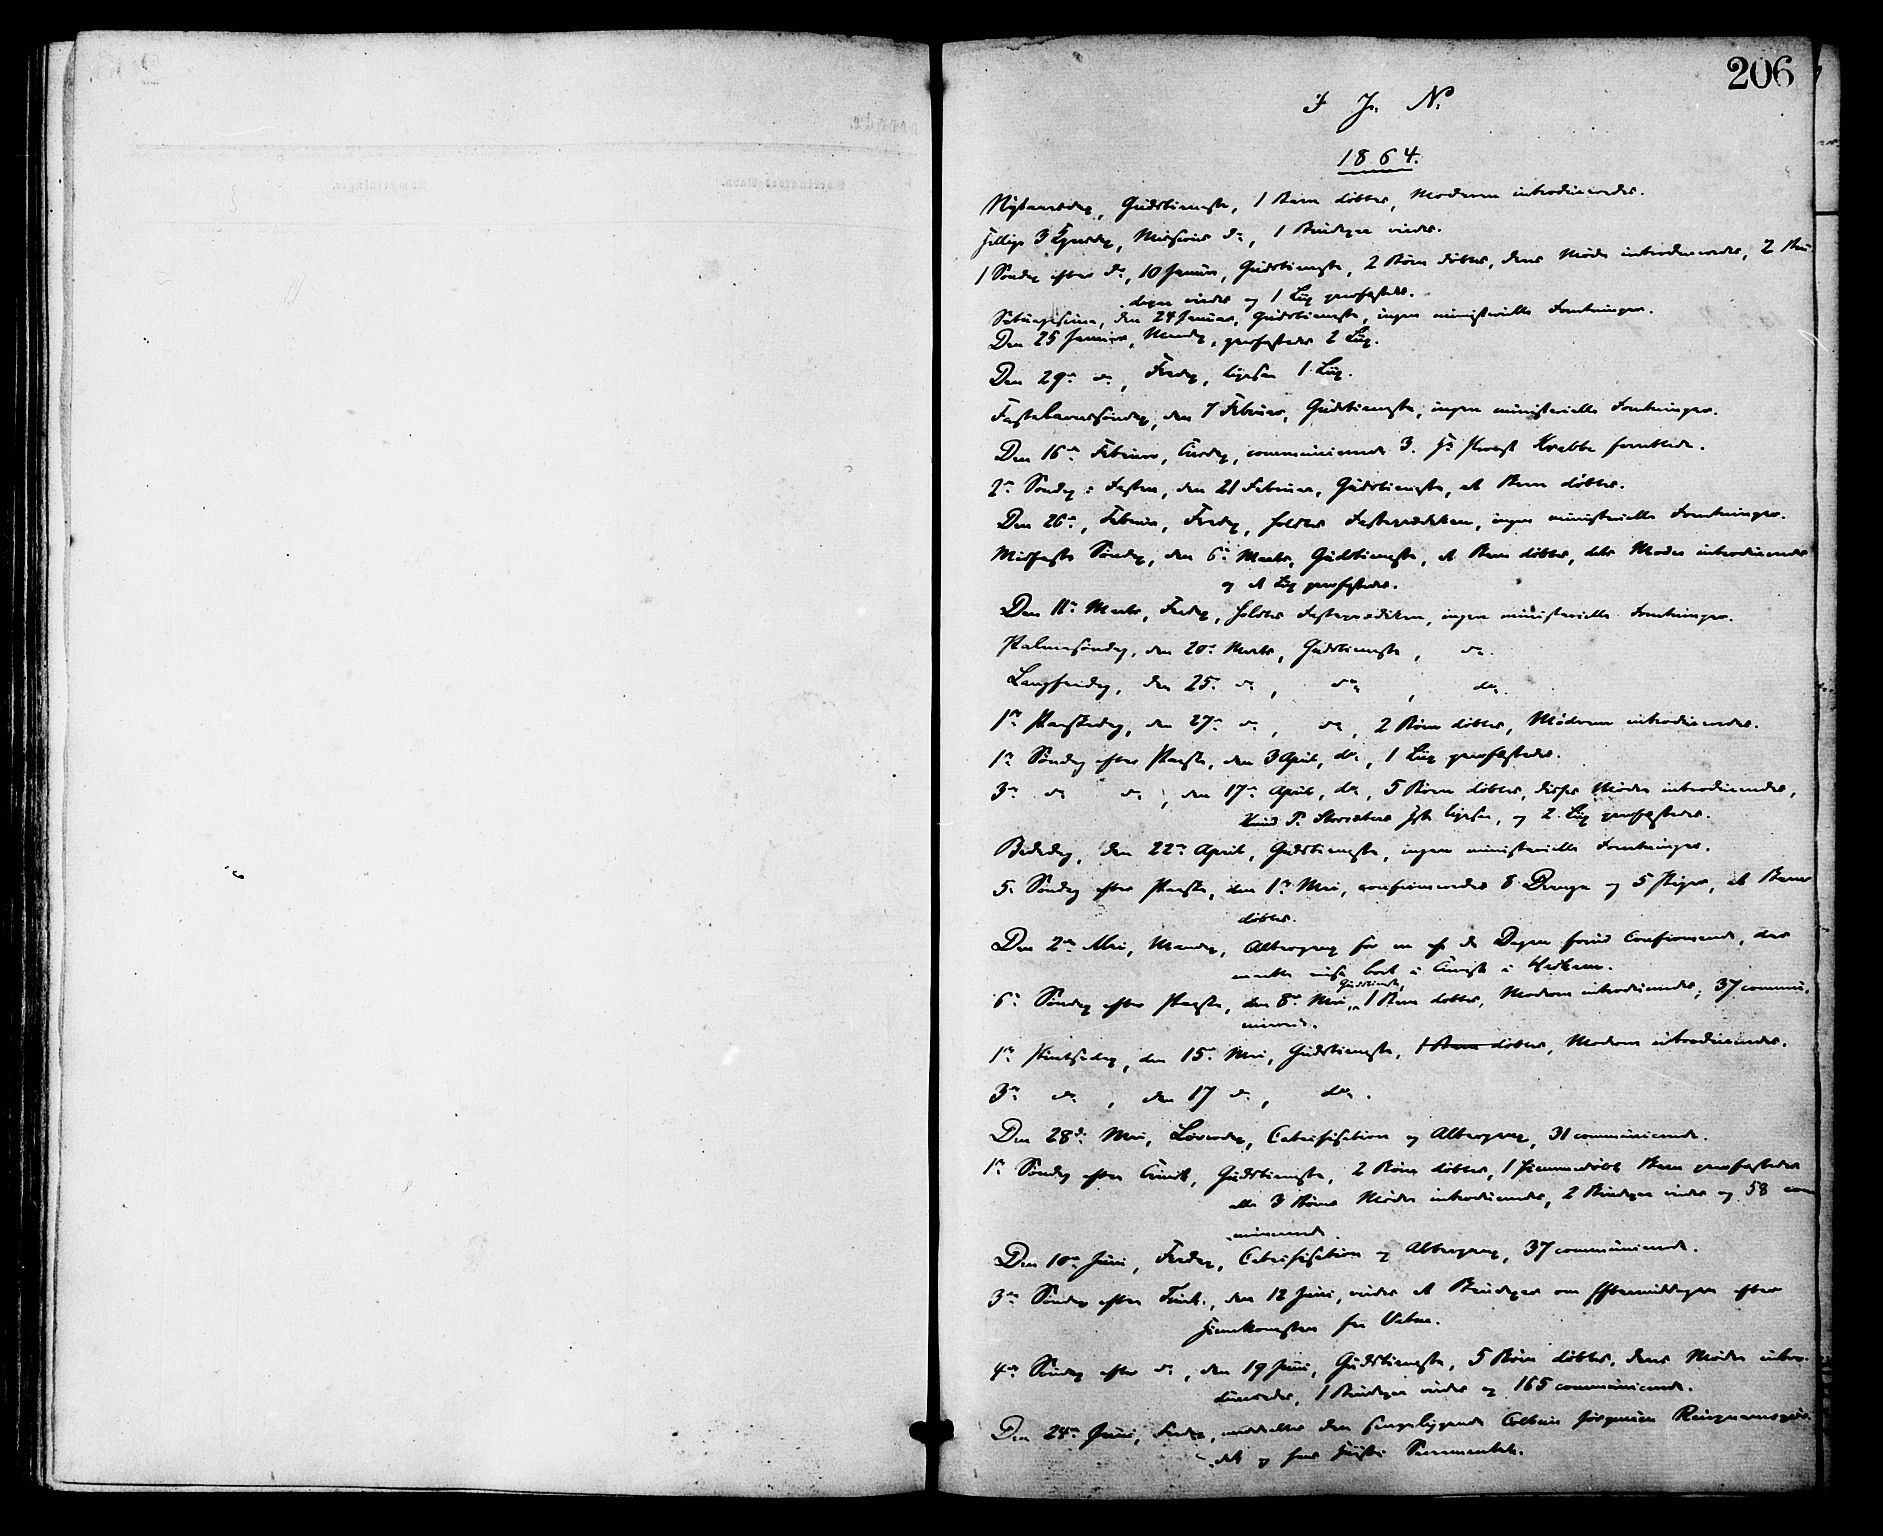 206
I J. N.
1864.
Nytaarsdag, Gudstieneste, 1 Barn døbtes, Moderen introduceredes.
Hellige 3 Kongersdag, Missions do, 1 Brudepar viedes.
1 Søndag efter do, 10 Januar, Gudstieneste, 2 Børn døbtes, deres Mødre introduceredes, 2 Bru-
depar viedes og 1 Liig jordfæstedes.
Septuagesima, den 24 Januar, Gudstieneste, ingen ministerielle Forretninger.
Den 25 Januar, Mandag, jordfæstedes 2 Liig.
Den 29de do, Fredag, ligesaa 1 Liig.
Fastelavnssøndag, den 7 Februar, Gudstieneste, ingen ministerielle Forretninger.
Den 16de Februar, Tirsdag, communicerede 3. Hr Provst Krabbe forrettede.
2den Søndag i Fasten, den 21 Februar, Gudstieneste, et Barn døbtes.
Den 26de, Februar, Fredag, holdtes Fasteprædiken, ingen ministerielle Forretninger.
Midfaste Søndag, den 6te Marts, Gudstieneste, et Barn døbtes, dets Moder introduceredes
og et Liig jordfæstedes.
Den 11te Marts, Fredag, holdtes Fasteprædiken, ingen ministerielle Forretninger.
Palmesøndag, den 20de Marts, Gudstieneste, do.
Langfredag, den 25de do, do, do.
1ste Paaskedag, den 27de do, do, 2 Børn døbtes, Mødrene introduceredes.
1ste Søndag efter Paaske, den 3 April, do, 1 Liig jordfæstedes.
3die do do, den 17de April, do, 5 Børn døbtes, disses Mødre introduceredes,
Knud P. ligesaa, og 2 Liig jordfæstedes.
Bededag, den 22de April, Gudstieneste, ingen ministerielle Forretninger.
5te Søndag efter Paaske, den 1ste Mai, confirmeredes 8 Drenge og 5 Piger, et Barn
døbtes.
Den 2den Mai, Mandag, Altergang for en af de Dagen forud Confirmerede, der
maatte reise bort i
6te Søndag efter Paaske, den 8de Mai, Gudstieneste, 1 Barn døbtes, Moderen introduceredes, 37 commu-
nicerede.
1ste Pintsedag, den 15de Mai, Gudstieneste, 1 Barn døbtes, Moderen introduceredes.
3die do, den 17 do, do.
Den 28de Mai, Løverdag, Catechisation og Altergang, 31 communicerede.
1ste Søndag efter Trinit., Gudstieneste, 2 Børn døbtes, 1 hjemmedøbt Barn jordfæstedes
alle 3 Børns Mødre introduceredes, 2 Brudepar viedes og 58 com
municerede.
Den 10de Juni, Fredag, Catechisation og Altergang, 37 communicerede.
3die Søndag efter Trinit., den 12 Juni, viedes et Brudepar om Eftermiddagen efter
Hjemkomsten fra Vatne.
4de Søndag efter do, den 19 Juni, Gudstieneste, 5 Børn døbtes, deres Mødre intro-
duceredes, 1 Brudepar viedes og 165 communicerede.
Den 24de Juni, Fredag, meddeltes den sengeliggende
og hans Hustru Sacramentet.